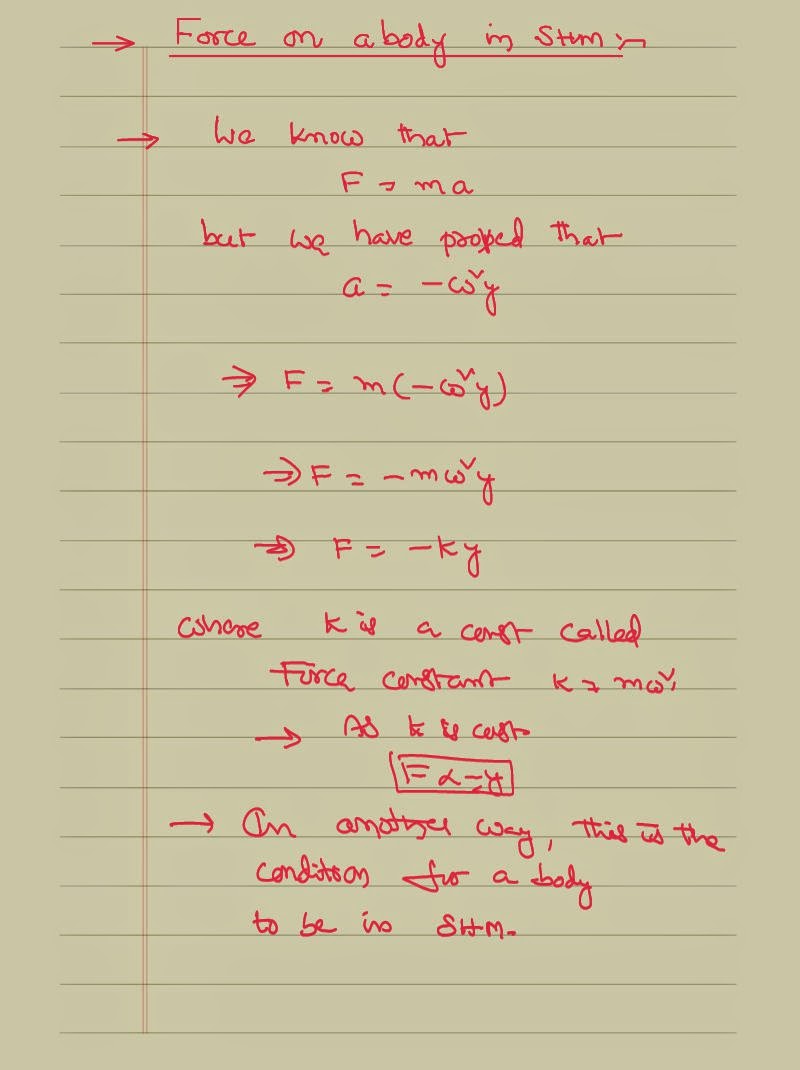 → Force on a body in SHM :-
→ We know that
F = ma
but we have proved that
a = -ω²y
⇒ F = m(-ω²y)
⇒ F = -mω²y
⇒ F = -ky
where k is a const called
Force constant k = mω²
→ As k is const.
F α -y
→ In another way, this is the
condition for a body
to be in SHM.